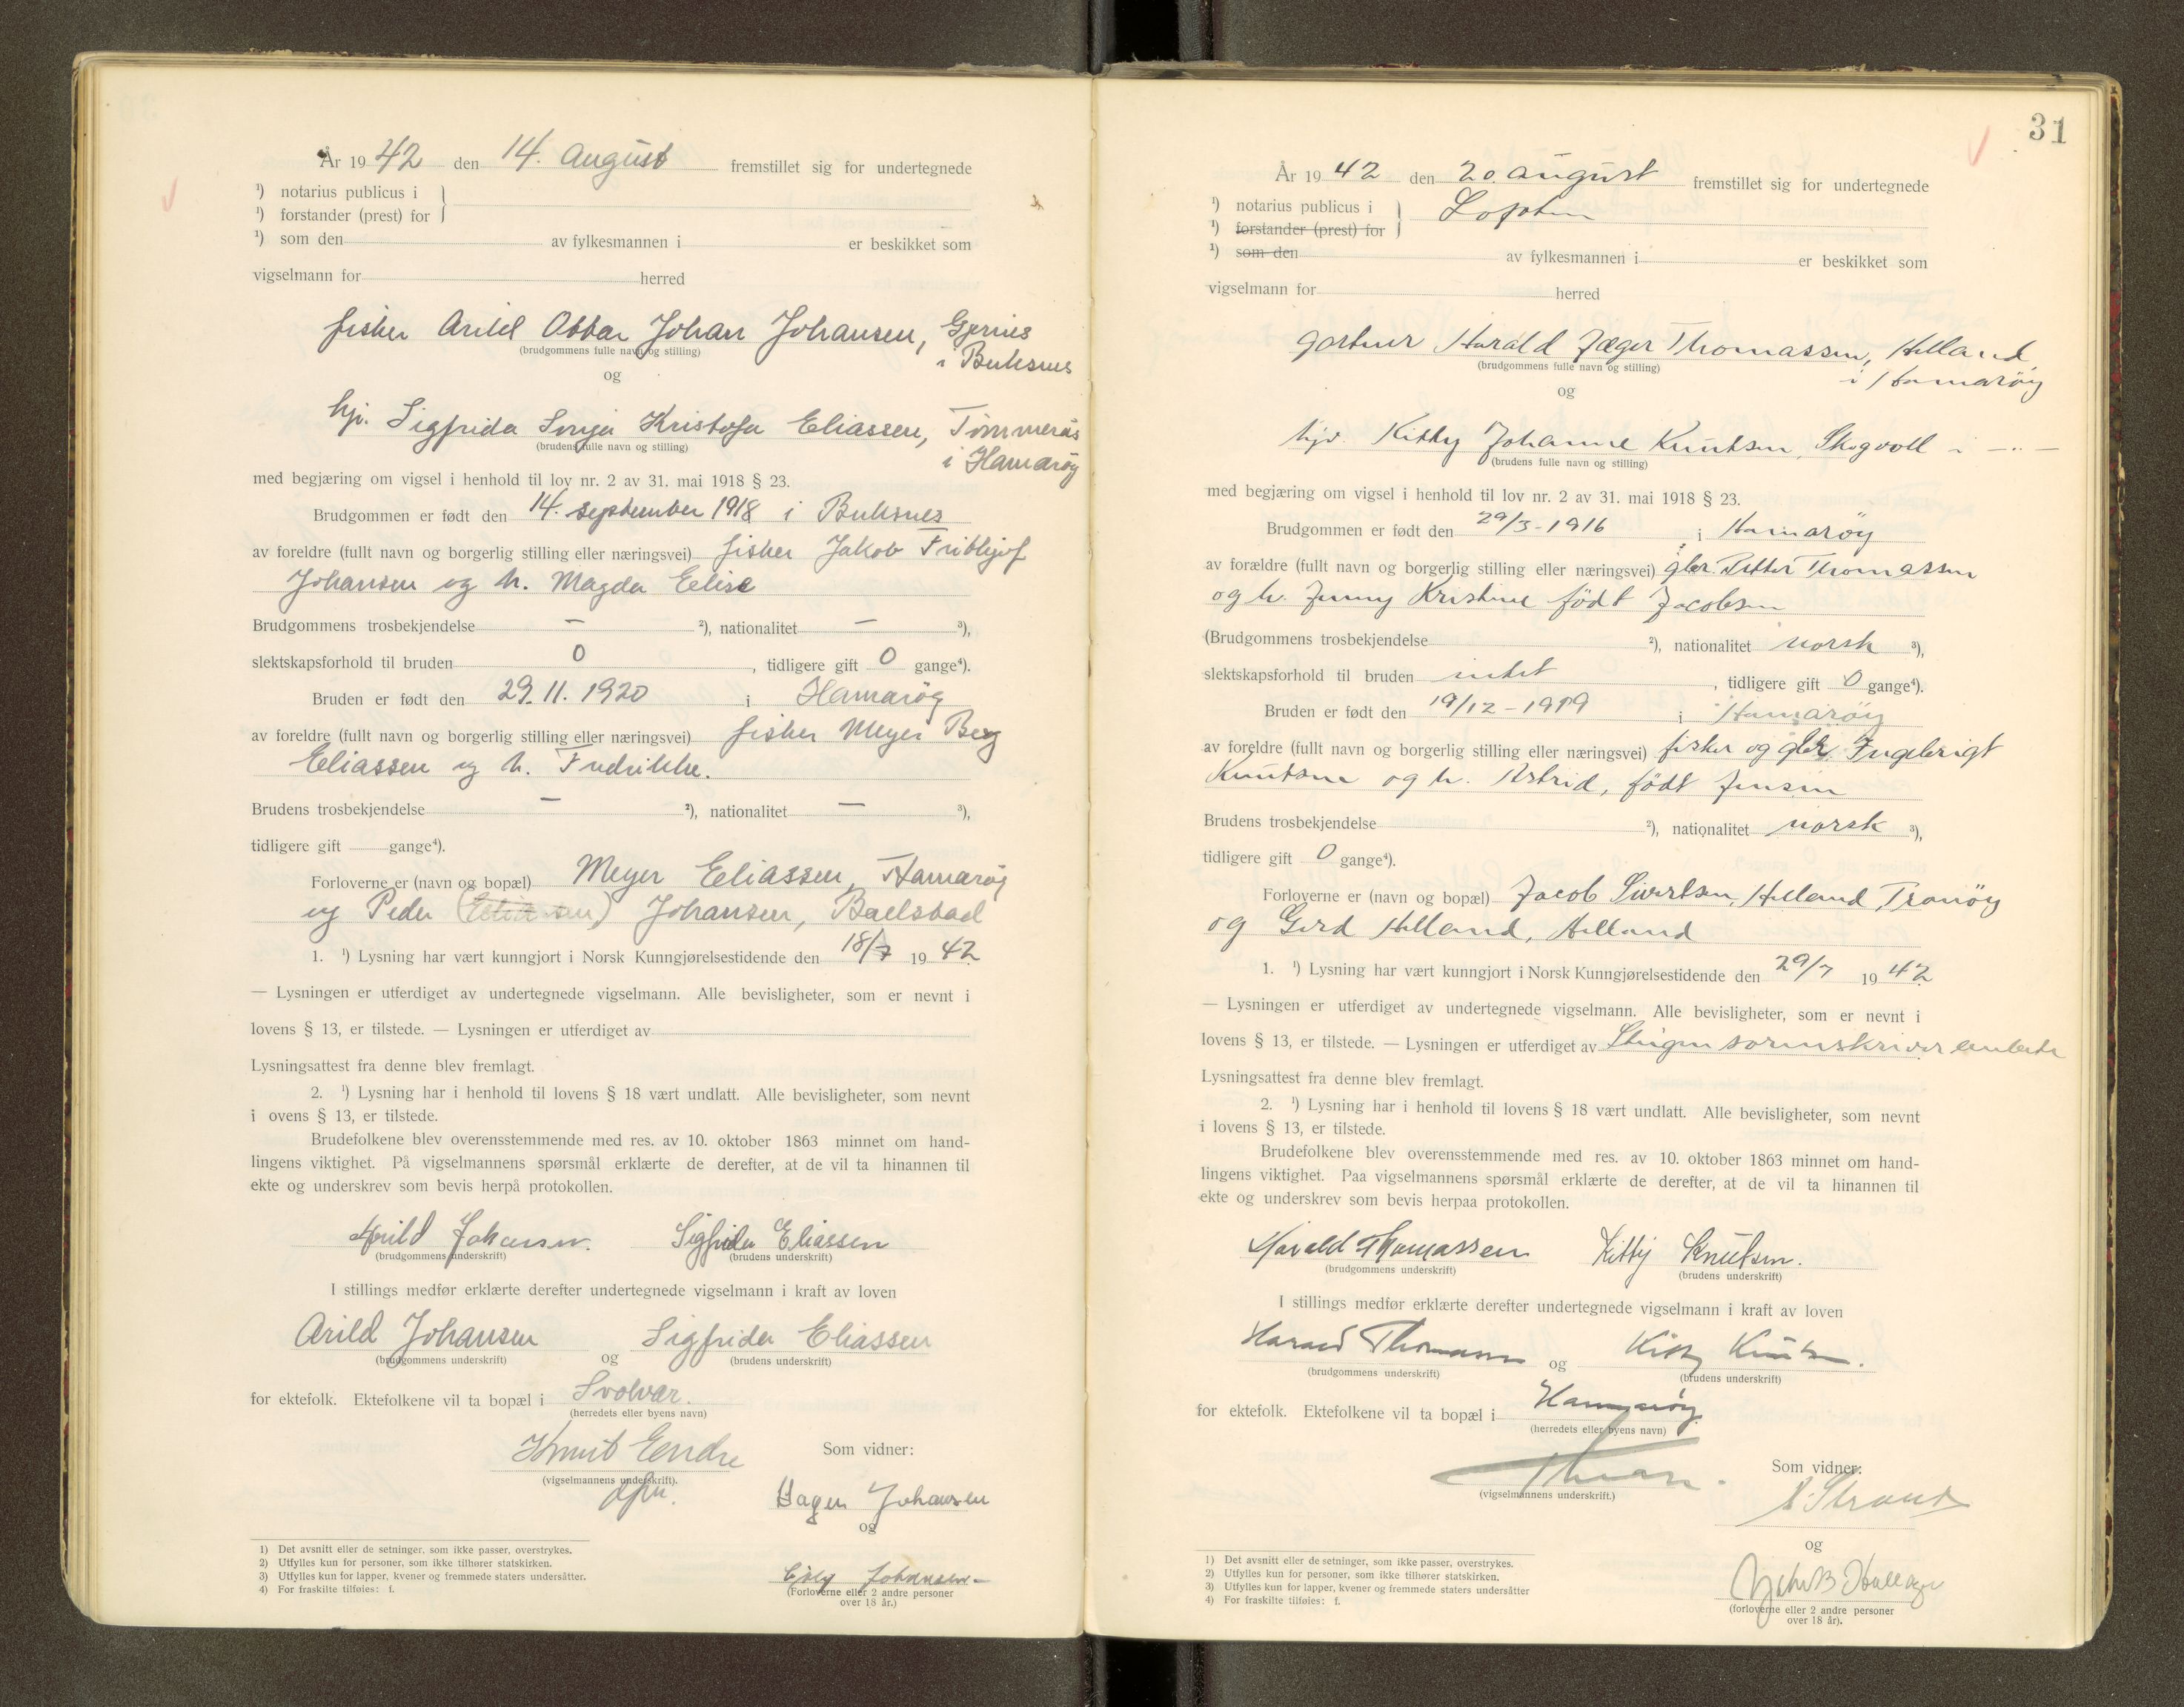 År 19 42 den 14. August fremstillet sig for undertegnede
¹) notarius publicus i
¹) forstander (prest) for
¹) som den av fylkesmannen i er beskikket som
vigselmann for herred
fisker Arild Ottar Johan Johansen, Gjernes
(brudgommens fulle navn og stilling)
i Buksnes
og
hj. Sigfrida Sonja Kristofa Eliassen, Tømmerås
(brudens fulle navn og stilling)
i Hamarøy
med begjæring om vigsel i henhold til lov nr. 2 av 31. mai 1918 § 23.
Brudgommen er født den 14. september 1918 i Buksnes
av foreldre (fullt navn og borgerlig stilling eller næringsvei) fisker Jakob Fridthjof
Johansen og h. Magda Elise
Brudgommens trosbekjendelse – ²), nationalitet – ³),
slektskapsforhold til bruden 0, tidligere gift 0 gange⁴).
Bruden er født den 29. 11. 1920 i Hamarøy
av foreldre (fullt navn og borgerlig stilling eller næringsvei) fisker Meyer Berg
Eliassen og h. Fredrikke.
Brudens trosbekjendelse – ²), nationalitet – ³),
tidligere gift gange⁴).
Forloverne er (navn og bopæl) Meyer Eliassen, Hamarøy
og Peder (Eliassen) Johansen, Ballstad
1. ¹) Lysning har vært kunngjort i Norsk Kunngjørelsestidende den 18/7 19 42
— Lysningen er utferdiget av undertegnede vigselmann. Alle bevisligheter, som er nevnt i
lovens § 13, er tilstede. — Lysningen er utferdiget av
Lysningsattest fra denne blev fremlagt.
2. ¹) Lysning har i henhold til lovens § 18 vært undlatt. Alle bevisligheter, som nevnt
i ovens § 13, er tilstede.
Brudefolkene blev overensstemmende med res. av 10. oktober 1863 minnet om hand-
lingens viktighet. På vigselmannens spørsmål erklærte de derefter, at de vil ta hinannen til
ekte og underskrev som bevis herpå protokollen.
Arild Johansen. Sigfrida Eliassen
(brudgommens underskrift) (brudens underskrift)
I stillings medfør erklærte derefter undertegnede vigselmann i kraft av loven
Arild Johansen og Sigfrida Eliassen
(brudgommens underskrift) (brudens underskrift)
for ektefolk. Ektefolkene vil ta bopæl i Svolvær.
(herredets eller byens navn)
Knut Endre Som vidner:
(vigselmannens underskrift).
Hagen Johansen
og
Johansen
(Forloverne eller 2 andre personer
over 18 år.)
1) Det avsnitt eller de setninger, som ikke passer, overstrykes.
2) Utfylles kun for personer, som ikke tilhører statskirken.
3) Utfylles kun for lapper, kvener og fremmede staters undersåtter.
4) For fraskilte tilføies: f.
31
År 19 42 den 20. august fremstillet sig for undertegnede
¹) notarius publicus i Lofoten
¹) forstander (prest) for
¹) som den av fylkesmannen i er beskikket som
vigselmann for herred
gartner Harald Jæger Thomassen, Helland
(brudgommens fulle navn og stilling)
i Hamarøy
og
hjv. Kitty Johanne Knutsen, Skogvoll i —"—
(brudens fulle navn og stilling)
med begjæring om vigsel i henhold til lov nr. 2 av 31. mai 1918 § 23.
Brudgommen er født den 29/3-1916 i Hamarøy
av forældre (fullt navn og borgerlig stilling eller næringsvei) gbr. Petter Thomassen
og h. Jenny Kristine født Jacobsen
(Brudgommens trosbekjendelse ²), nationalitet norsk ³),
slektskapsforhold til bruden intet, tidligere gift 0 gange⁴).
Bruden er født den 19/12-1919 i Hamarøy
av foreldre (fullt navn og borgerlig stilling eller næringsvei) fisker og gbr. Ingebrigt
Knutsen og h. Astrid, født Jensen
Brudens trosbekjendelse ²), nationalitet norsk ³),
tidligere gift 0 gange⁴).
Forloverne er (navn og bopæl) Jacob Sivertsen, Helland, Tranøy
og Gerd Helland, Helland
1. ¹) Lysning har vært kunngjort i Norsk Kunngjørelsestidende den 29/7 19 42
— Lysningen er utferdiget av undertegnede vigselmann. Alle bevisligheter, som er nevnt i
lovens § 13, er tilstede. — Lysningen er utferdiget av Steigen sorenskriverembete
Lysningsattest fra denne blev fremlagt.
2. ¹) Lysning har i henhold til lovens § 18 vært undlatt. Alle bevisligheter, som nevnt
i lovens § 13, er tilstede.
Brudefolkene blev overensstemmende med res. av 10. oktober 1863 minnet om hand-
lingens viktighet. Paa vigselmannens spørsmål erklærte de derefter, at de vil ta hinannen til
ekte og underskrev som bevis herpaa protokollen.
Harald Thomassen Kitty Knutsen.
(brudgommens underskrift) (brudens underskrift)
I stillings medfør erklærte derefter undertegnede vigselmann i kraft av loven
Harald Thomassen og Kitty Knutsen.
(brudgommens underskrift) (brudens underskrift)
for ektefolk. Ektefolkene vil ta bopæl i Hamarøy
(herredets eller byens navn)
Som vidner:
(vigselmannens underskrift.)
Strand
og
(forloverne eller 2 andre personer
over 18 år).
1) Det avsnitt eller de setninger, som ikke passer, overstrykes.
2) Utfylles kun for personer, som ikke tilhører statskirken.
3) Utfylles kun for lapper, kvener og fremmede staters undersåtter
4) For fraskilte tilføies: f.